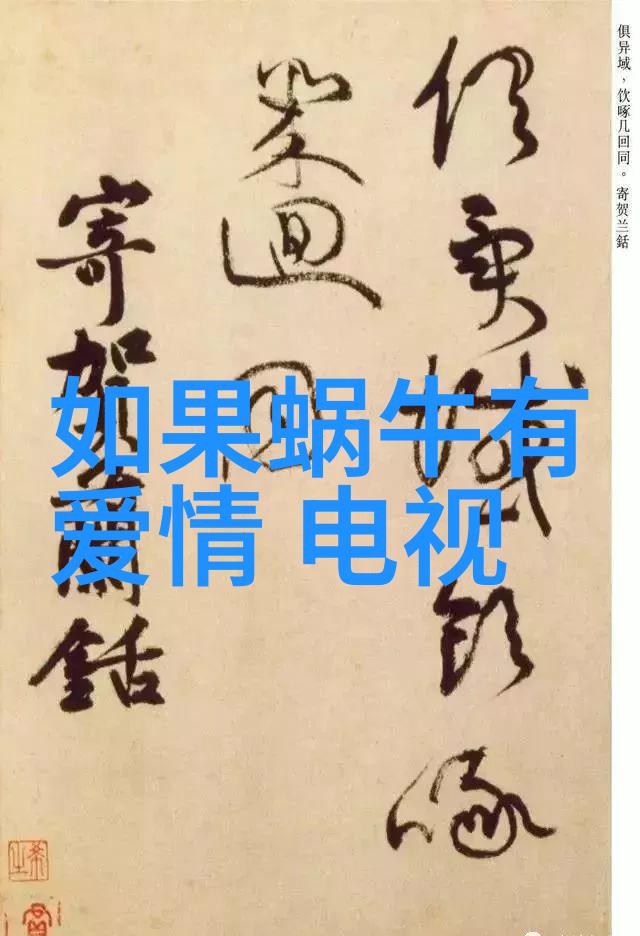 俱异域，饮啄几回同。寄贺兰銛
俱異域飲啄
幾迴同
寄賀蘭銛
如果蜗牛有
爱情 电视